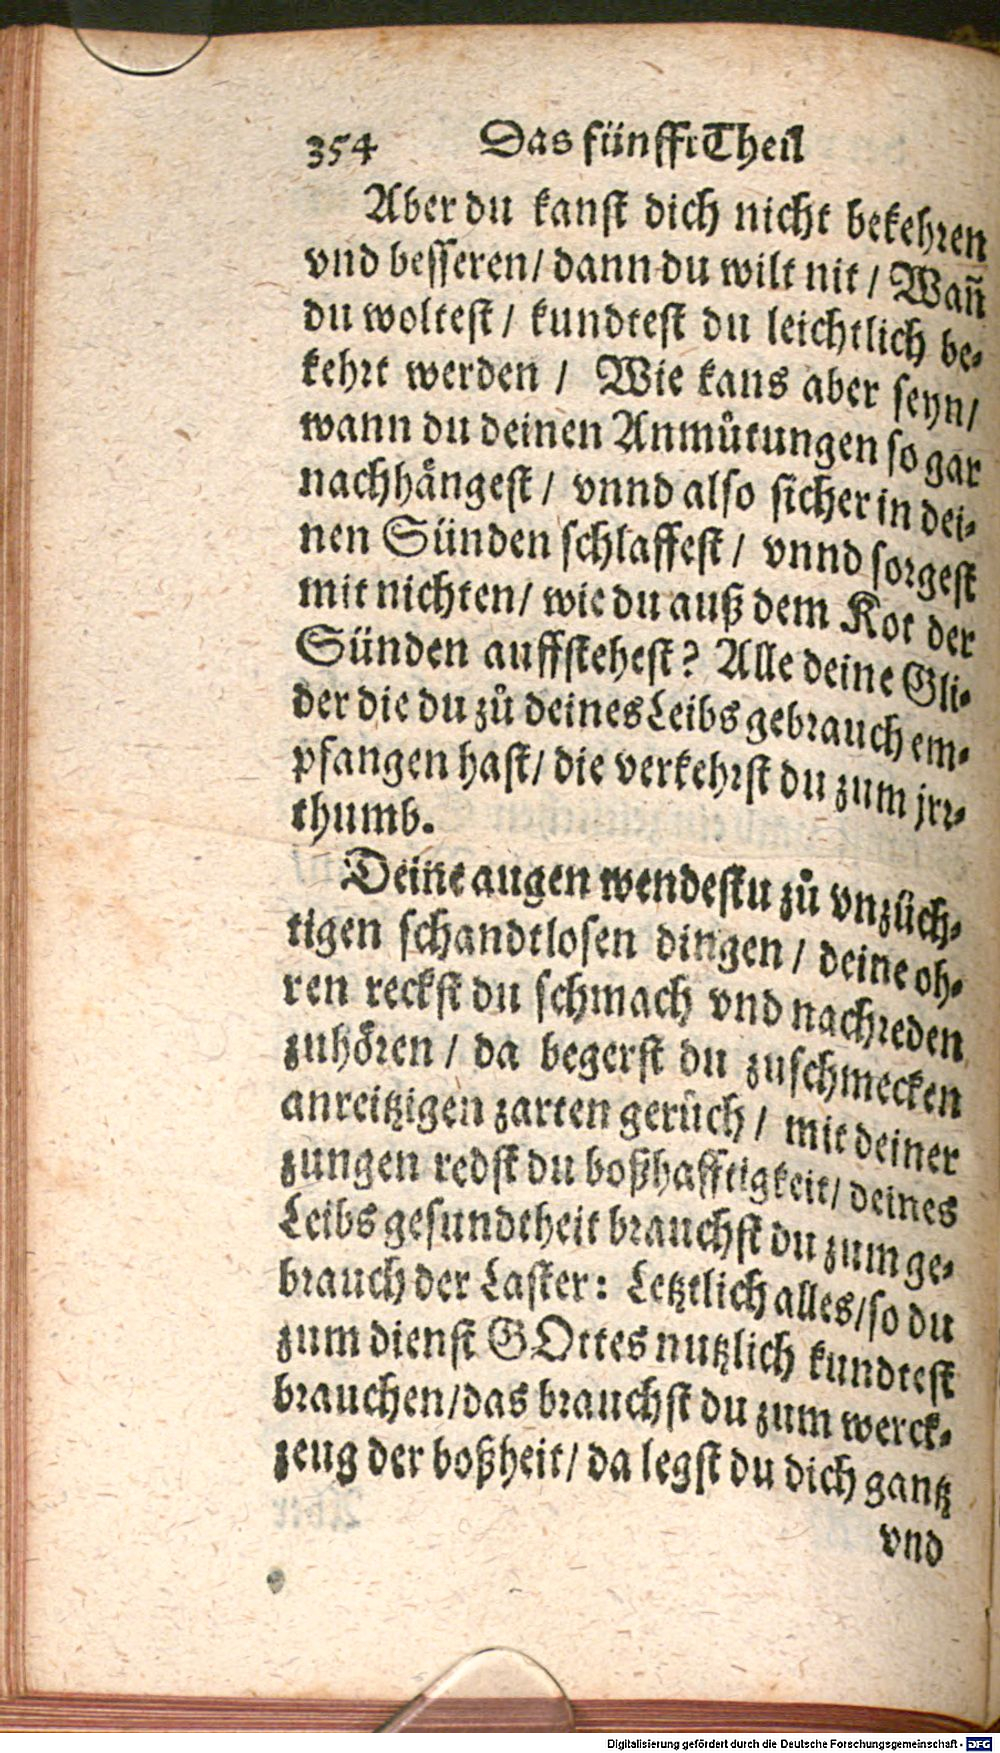 354 Das fünfft Theil
Aber du kanst dich nicht bekehren
vnd besseren/ dann du wilt nit / Wañ
du woltest / kundtest du leichtlich be-
kehrt werden / Wie kans aber seyn/
wann du deinen Anmuͤtungen so gar
nachhaͤngest / vnnd also sicher in dei-
nen Sünden schlaffest / vnnd sorgest
mit nichten/ wie du auß dem Kot der
Sünden auffstehest? Alle deine Gli-
der die du zuͦ deines Leibs gebrauch em-
pfangen hast/ die verkehrst du zum jrr-
thumb.
Deine augen wendestu zuͦ vnzuͤch-
tigen schandtlosen dingen / deine oh-
ren reckst du schmach vnd nachreden
zuhoͤren / da begerst du zuschmecken
anreitzigen zarten geruͤch / mit deiner
zungen redst du boßhafftigkeit/ deines
Leibs gesundtheit brauchst du zum ge-
brauch der Laster: Letztlich alles/so du
zum dienst GOttes nutzlich kundtest
brauchen/das brauchst du zum werck-
zeug der boßheit/ da legst du dich gantz
vnd
Digitalisierung gefördert durch die Deutsche Forschungsgemeinschaft - DFG